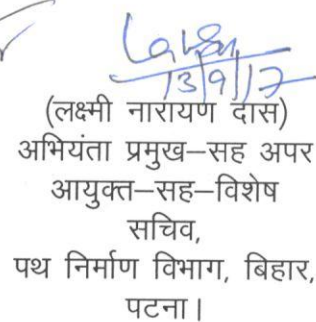 13/9/17
(लक्ष्मी नारायण दास)
अभियंता प्रमुख–सह अपर
आयुक्त–सह–विशेष
सचिव,
पथ निर्माण विभाग, बिहार,
पटना।